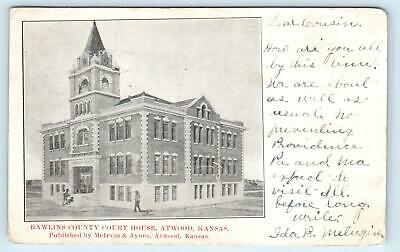 Dear Cousin.
How are you all
by this time.
We are about
as well as
usual. No
preventing
Providence
Pa and Ma
expect to
visit Ill.
before long.
Write.
Ida B.
RAWLINS COUNTY COURT HOUSE, ATWOOD, KANSAS.
Published by & Aynes, Atwood, Kansas.